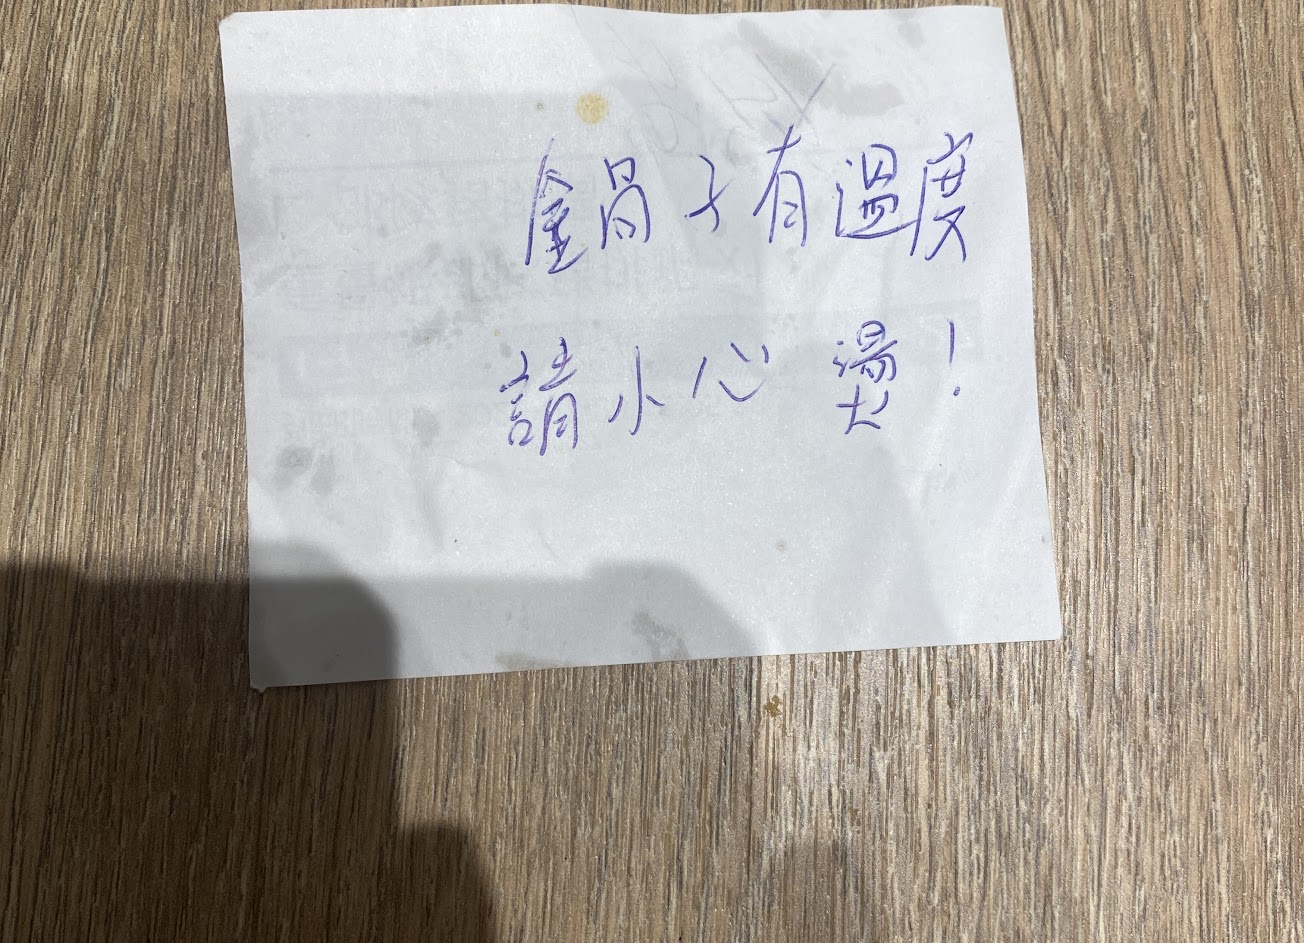 鍋子有溫度
請小心燙!